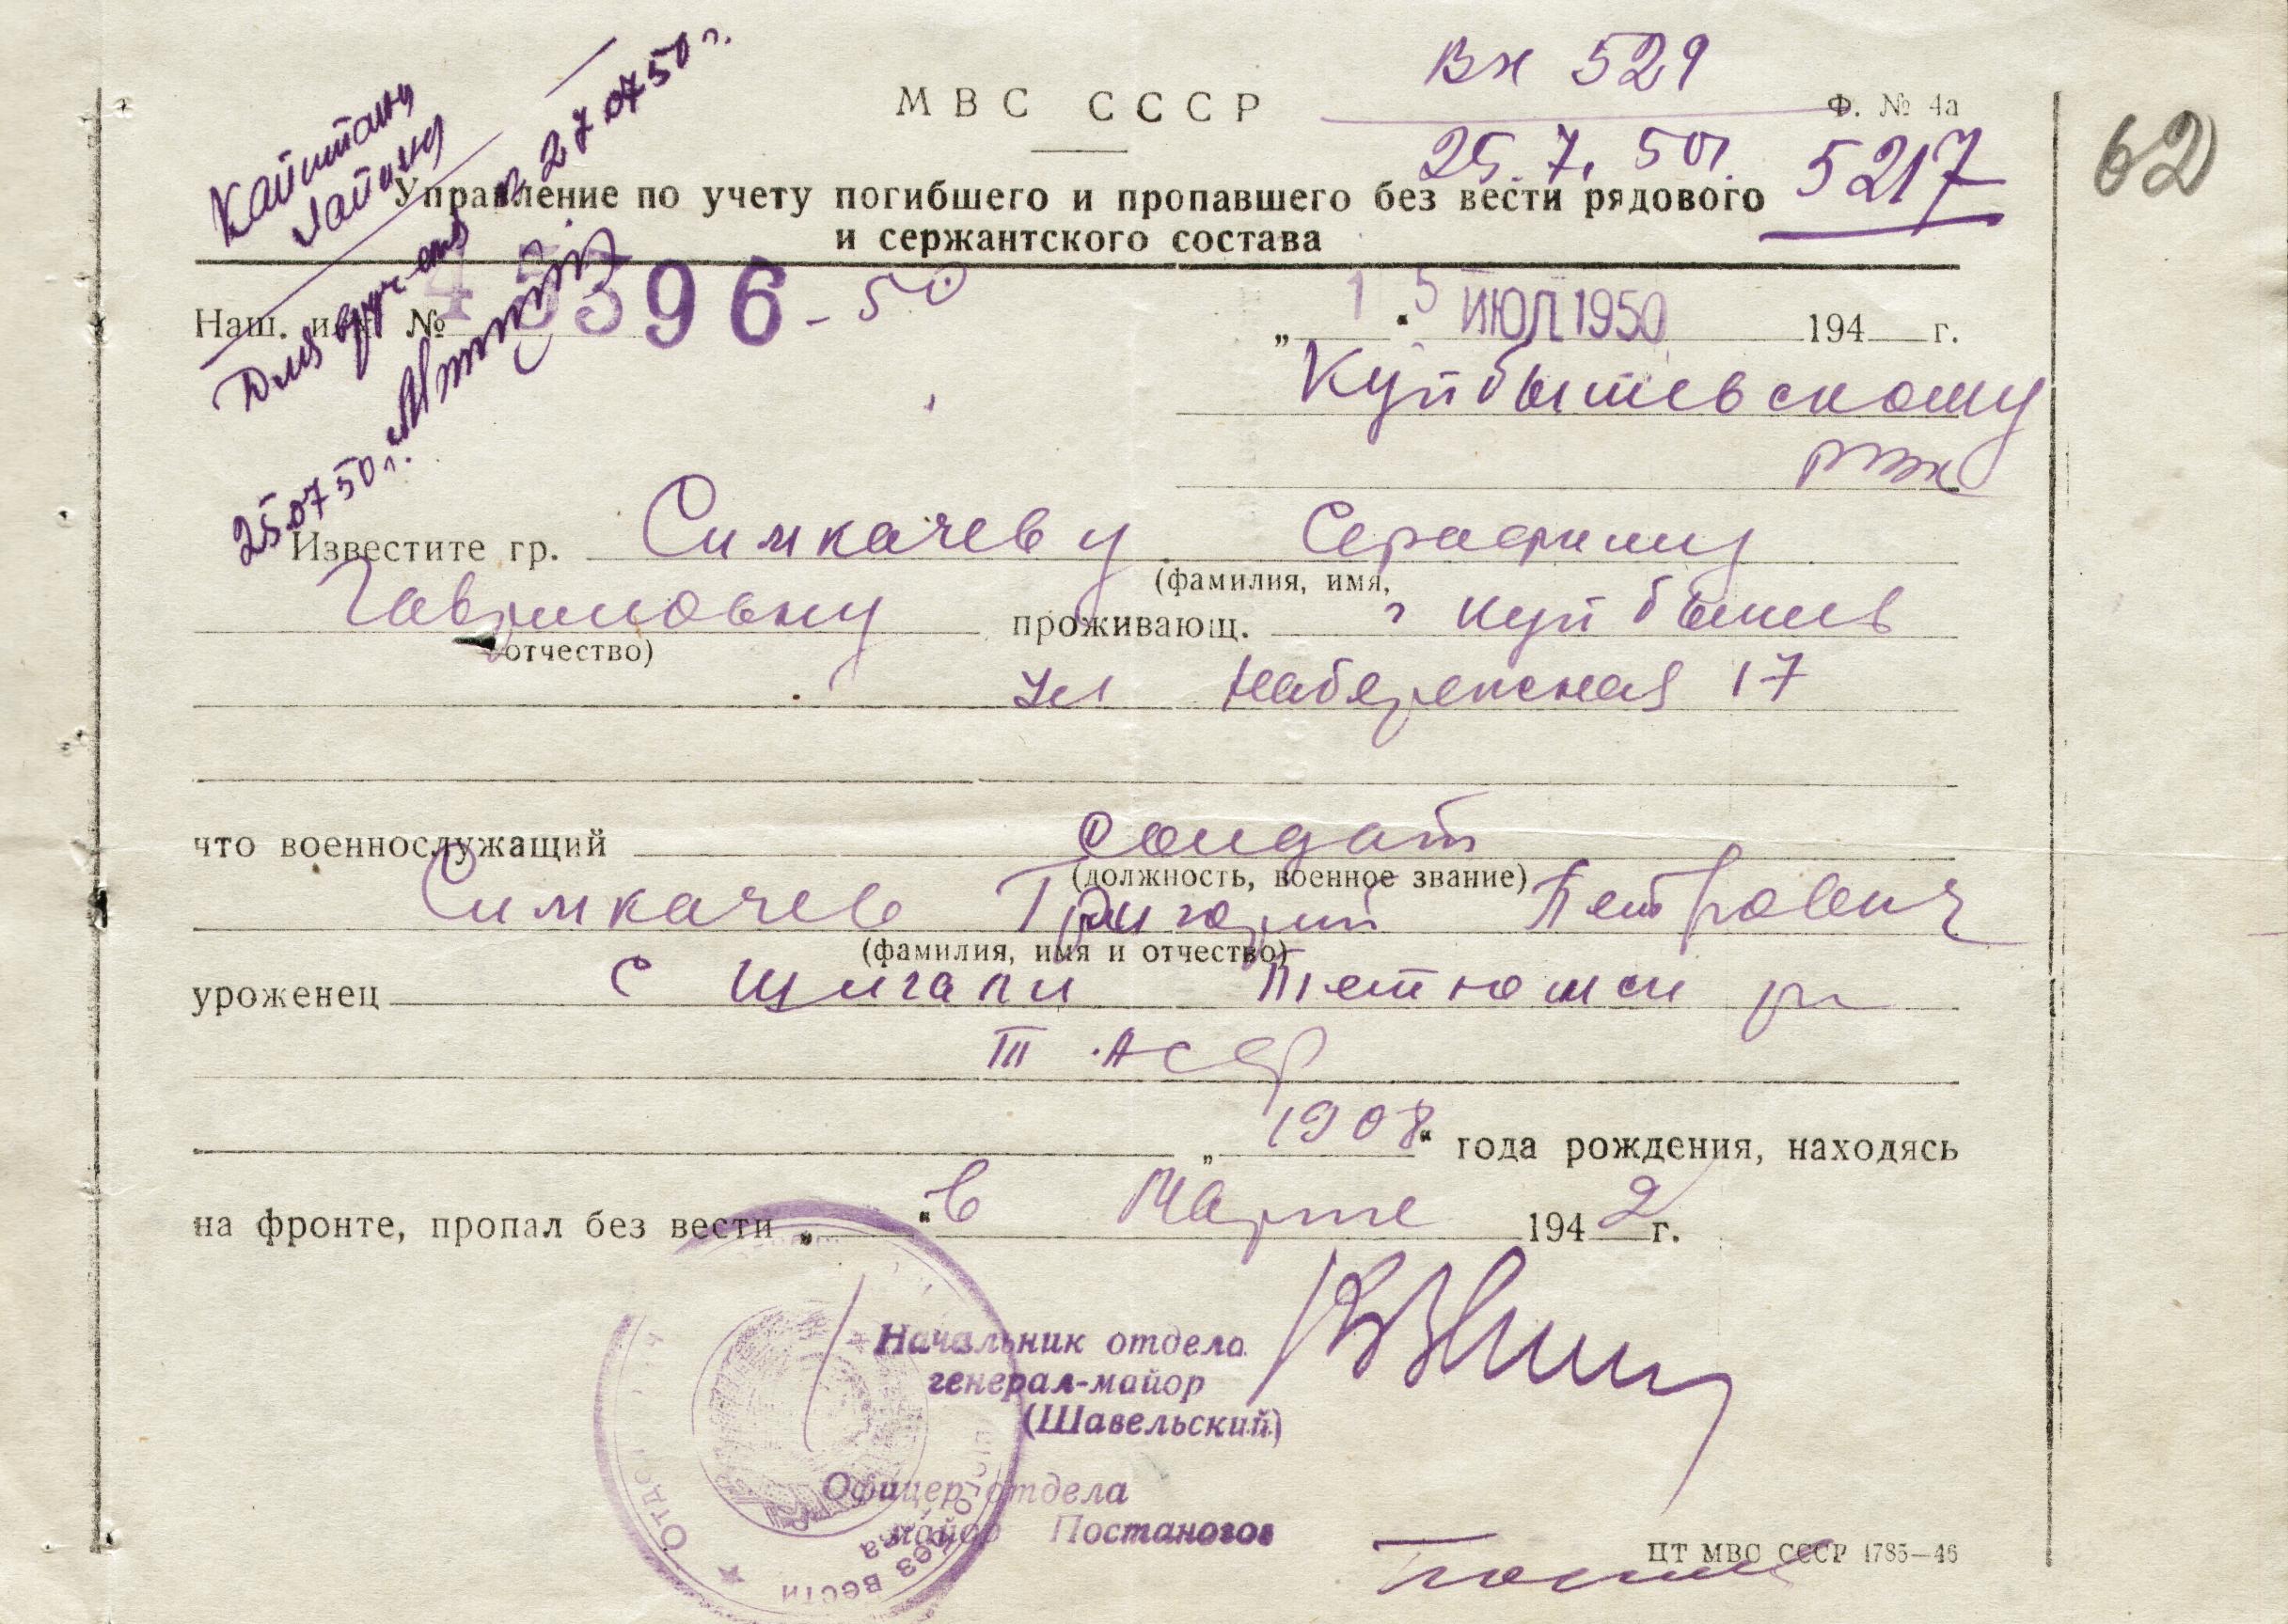 Вх 529
МВС СССР
Ф. № 4а
25.7.50г. 5217
62
Капитану
Управление по учету погибшего и пропавшего без вести рядового
и сержантского состава
к 27 07 50 г.
Для
25.07 50 г.
Наш. исх. № 396 - 50
„15“ ИЮЛ 1950 194 г.
Куйбышевскому
РВК
Известите гр. Симкачеву Серафиму
(фамилия, имя,
Гавриловну проживающ. г Куйбышев
отчество)
ул Набережная 17
что военнослужащий солдат
(должность, военное звание)
Симкачев Григорий Петрович
(фамилия, имя и отчество)
уроженец с Щигали Тетюшск р
Т. АССР
„1908“ года рождения, находясь
на фронте, пропал без вести „ “ в Марте 1942 г.
Начальник отдела
генерал-майор
(Шавельский)
Офицер отдела
майор Постаногов
ЦТ МВС СССР 1785—46
Отдел
без вести